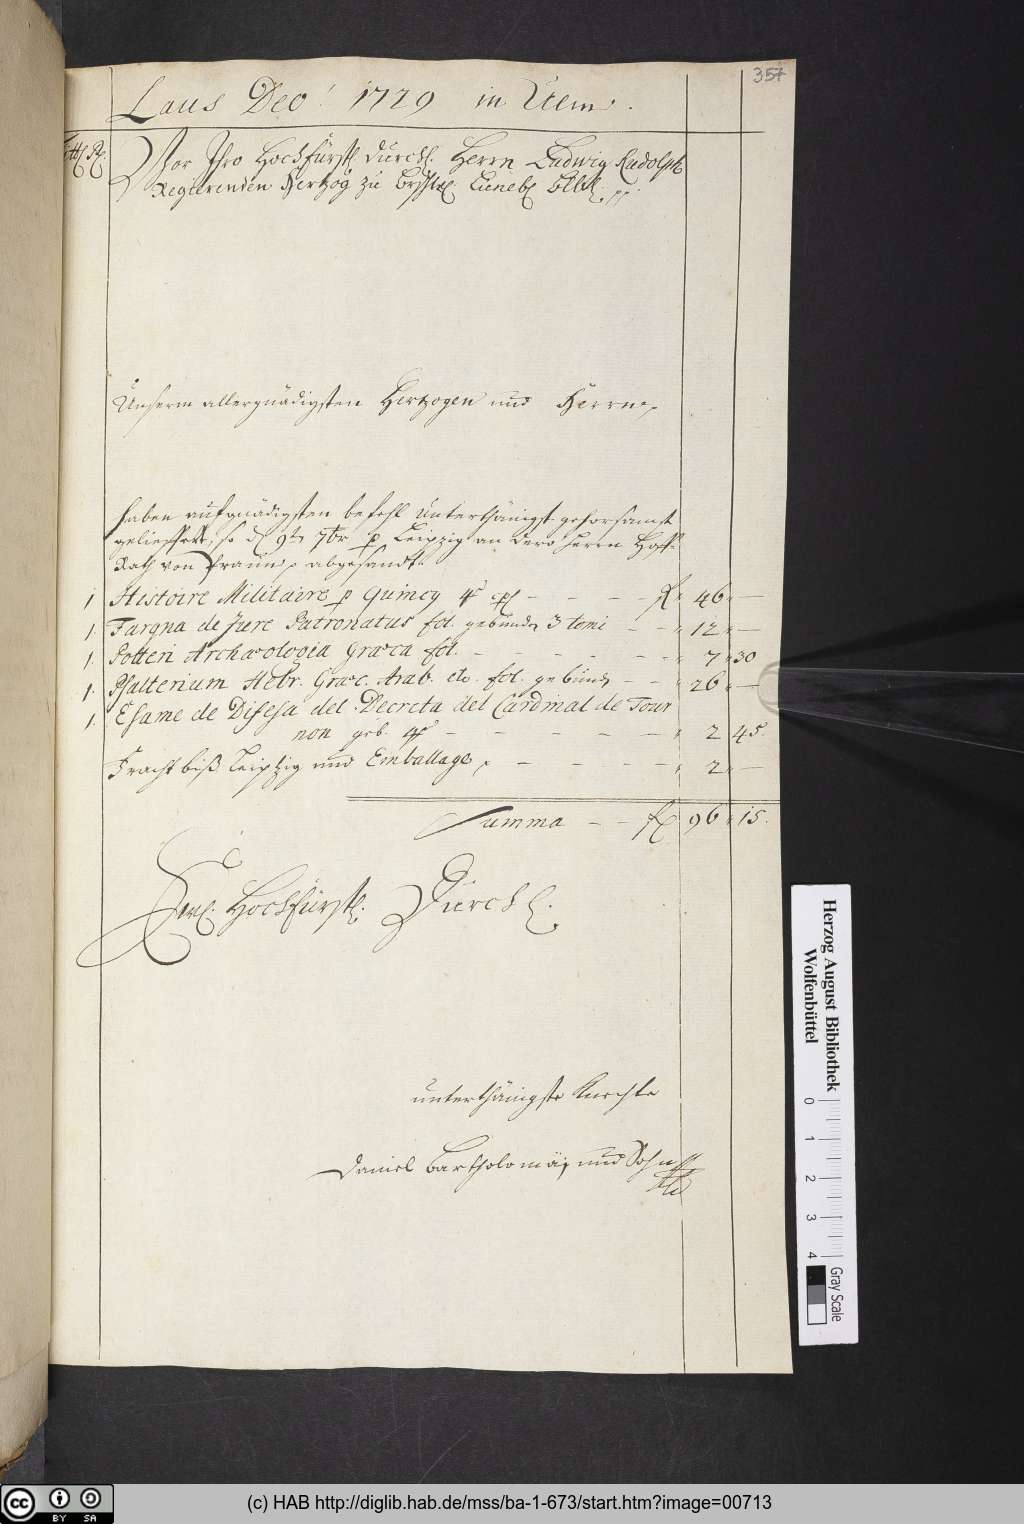 357
Laus Deo! 1729 in Ulm.
Vor Ihro Hochfürstl. Durchl. Herrn Ludwig Rudolph
Regierenden Hertzog zu Lüneb.
Unserm allergnädigsten Hertzogen und Herrn,
haben auf gnädigsten befehl Unterthänigst gehorsamst
geliefert, so d. 9t. 7br. p Leipzig an dero Herrn Hoff-
Rath von Praun, abgesandt.
1 Histoire Militaire p Quincy 4° - - - - f " 46 " -
1. Fargna de Jure Patronatus fol. gebunden 3 tomi - - " 12 " -
1. Potteri Archæologia Græca fol. - - - - - - " 7 " 30
1. Psalterium Hebr. Græc. Arab. etc. fol. gebund. - - " 26 " -
1. Esame de Difesa del Decreta del Cardinal de Tour
non geb. 4° - - - - - " 2 45.
Fracht biß Leipzig und Emballage, - - - - " 2 " -
Summa - - f 96 " 15.
Ew. Hochfürstl. Durchl.
unterthänigste Knechte
Daniel Bartholomäi und Sohn
Herzog August Bibliothek
Wolfenbüttel
0 1 2 3 4
Gray Scale
cc BY SA
(c) HAB http://diglib.hab.de/mss/ba-1-673/start.htm?image=00713